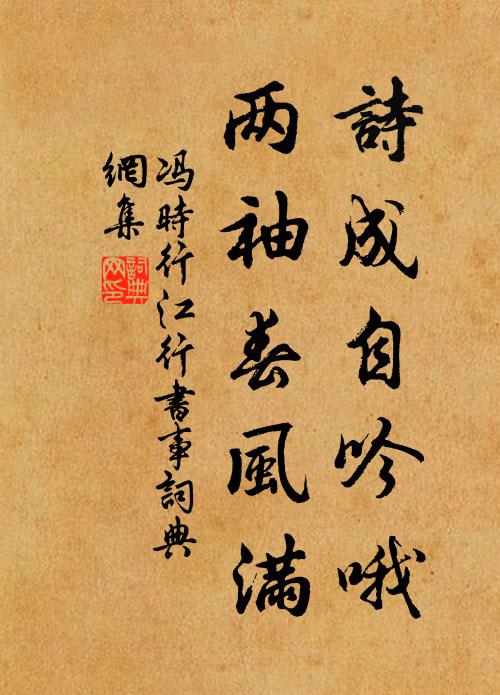 詩成自吟哦
两袖春風满
冯時行江行書事詞典
網集
詞典
网印